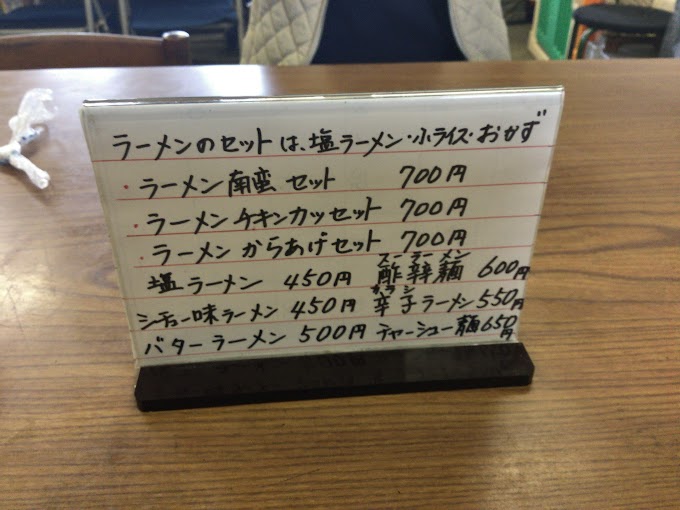 ラーメンのセットは、塩ラーメン・小ライス・おかず
・ラーメン南蛮 セット 700円
・ラーメンチキンカツセット 700円
・ラーメンからあげセット 700円
スーラーメン
塩ラーメン 450円 酢辣麺 600円
カラシ
シチュー味ラーメン 450円 辛子ラーメン 550円
バターラーメン 500円 チャーシュー麺 650円